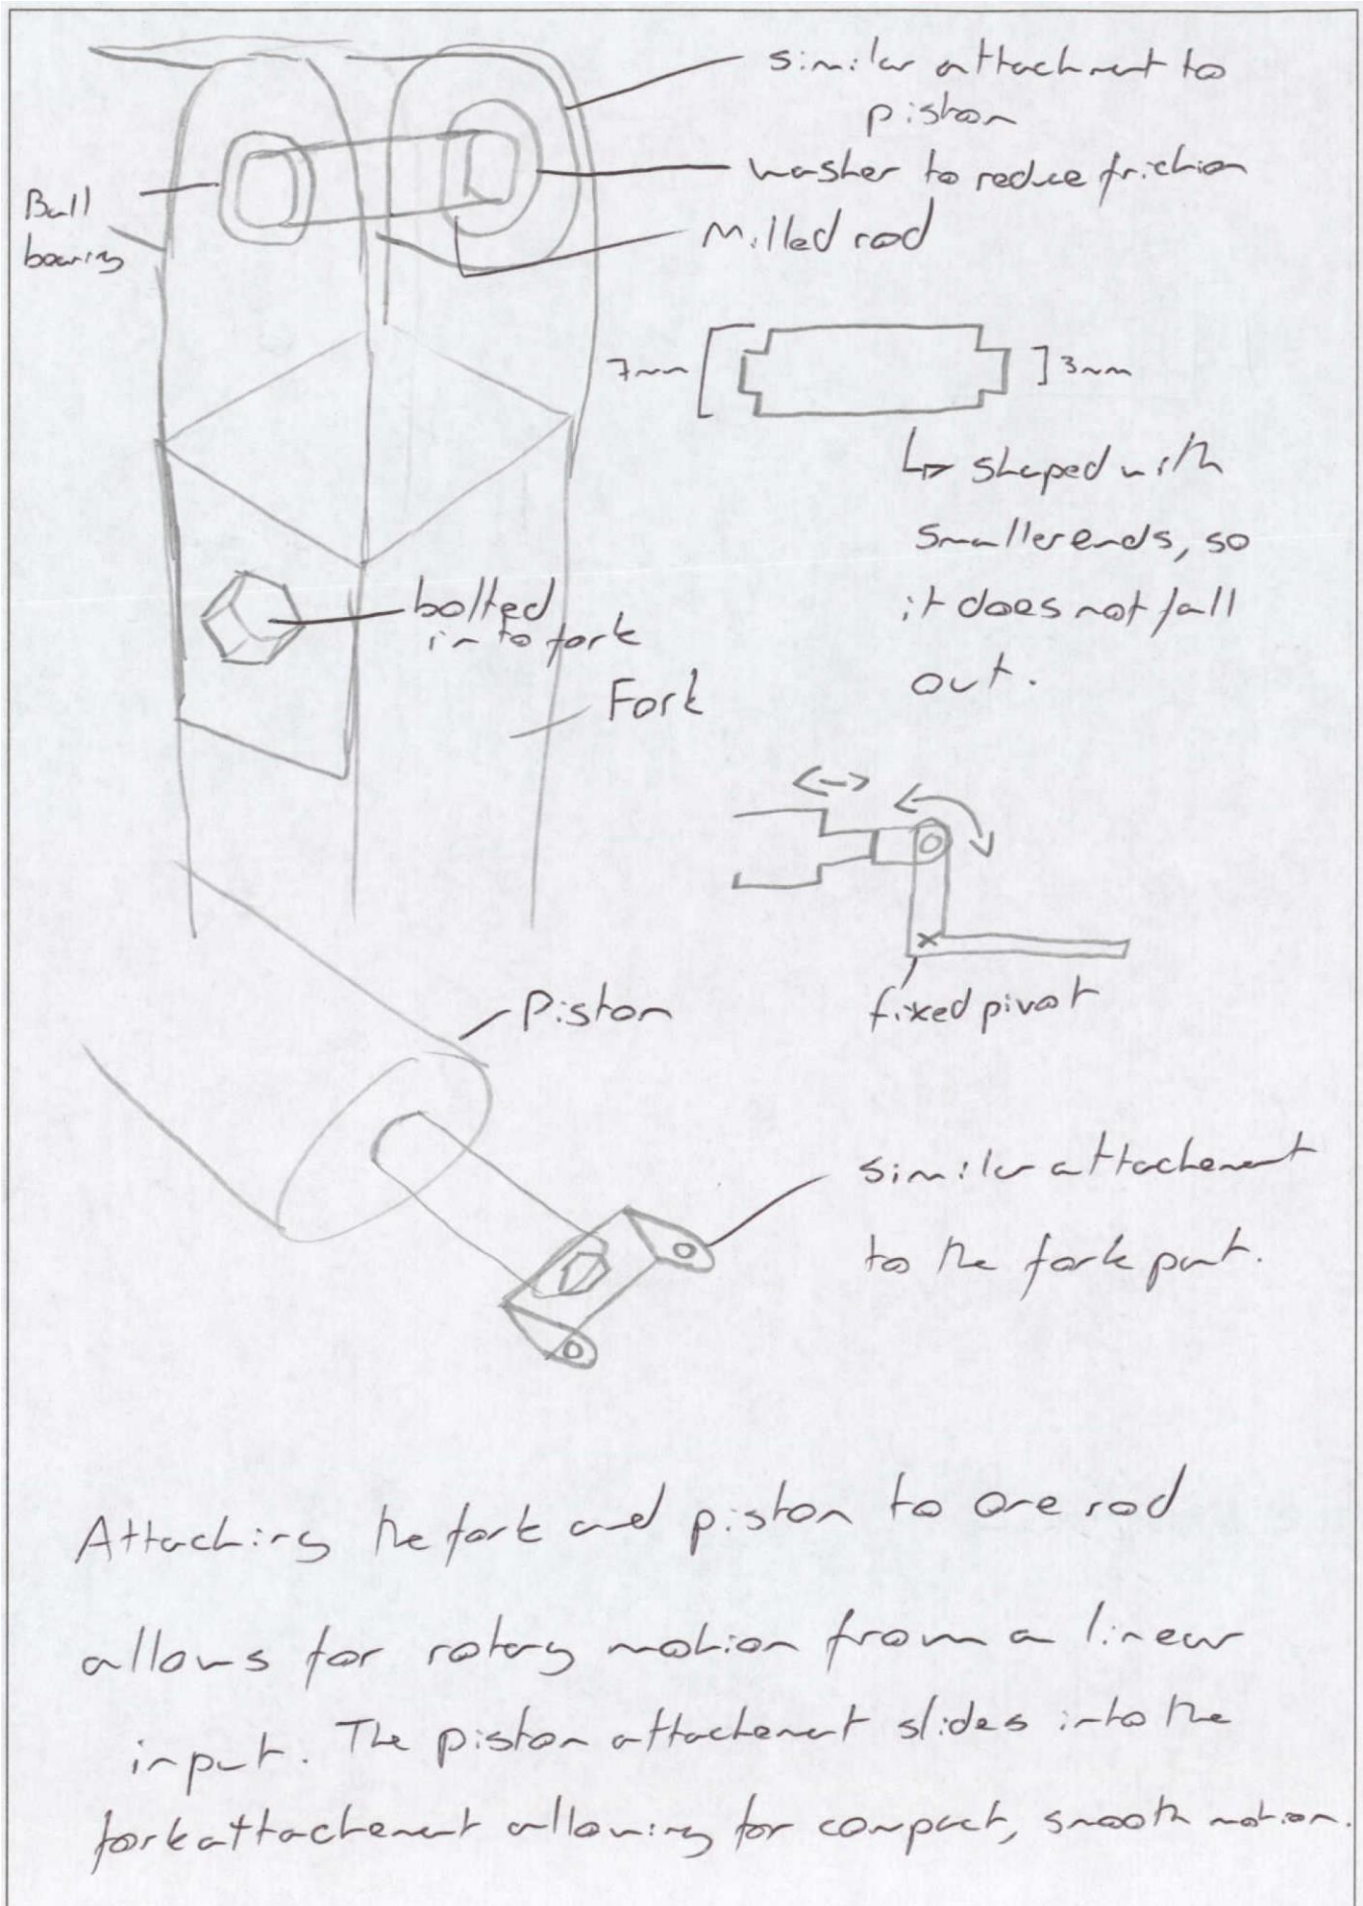 similar attachment to
piston
washer to reduce friction
Milled rod
Ball
bearing
7mm
3mm
↳ shaped with
smaller ends, so
it does not fall
out.
bolted
in to fork
Fork
fixed pivot
Piston
similar attachement
to the fork part.
Attaching the fork and piston to one rod
allows for rotary motion from a linear
input. The piston attachement slides into the
fork attachement allowing for compact, smooth motion.